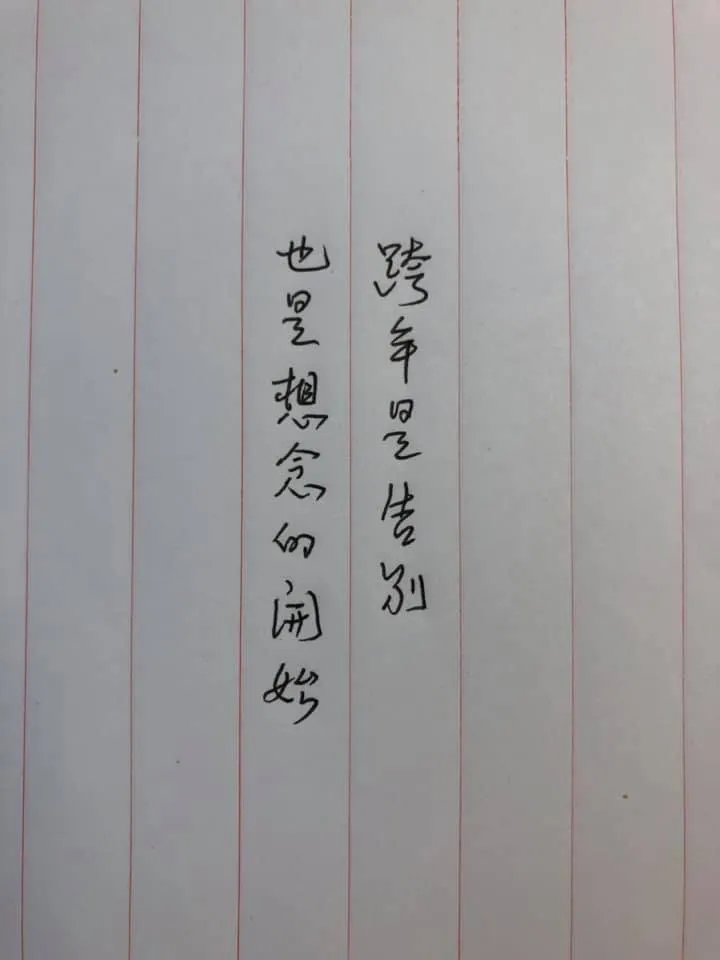 跨年是告别
也是想念的開始